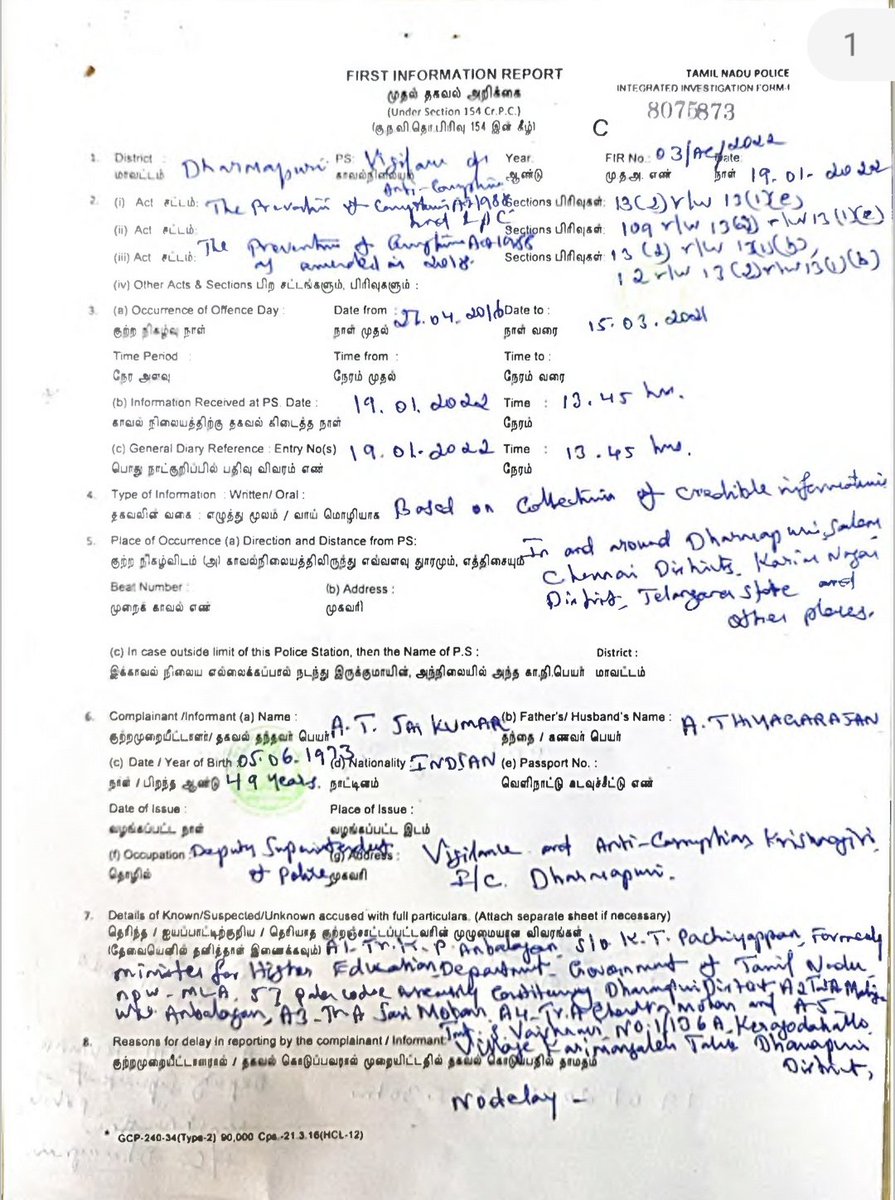 1
FIRST INFORMATION REPORT
TAMIL NADU POLICE
முதல் தகவல் அறிக்கை
INTEGRATED INVESTIGATION FORM-I
(Under Section 154 Cr.P.C.)
8075873
(கு.ந.வி.தொ.பிரிவு 154 இன் கீழ்)
C
1. District : Dharmapuri PS: Vigilance & Anti-Corruption Year. FIR No.: 03/AC/2022 Date
மாவட்டம் காவல்நிலையம் ஆண்டு மு.த.அ. எண் நாள் 19.01-2022
2. (i) Act சட்டம்: The Prevention of Corruption Act 1988 Sections பிரிவுகள்: 13(2) r/w 13(1)(e)
(ii) Act சட்டம்: and IPC Sections பிரிவுகள்: 109 r/w 13(2) r/w 13(1)(e)
(iii) Act சட்டம்: The Prevention of Corruption Act 1988 as amended in 2018. Sections பிரிவுகள்: 13(2) r/w 13(1)(b),
12 r/w 13(2) r/w 13(1)(b)
(iv) Other Acts & Sections பிற சட்டங்களும், பிரிவுகளும் :
3. (a) Occurrence of Offence Day : Date from : 27.04.2016 Date to :
குற்ற நிகழ்வு நாள் நாள் முதல் நாள் வரை 15.03.2021
Time Period : Time from : Time to :
நேர அளவு நேரம் முதல் நேரம் வரை
(b) Information Received at PS. Date : 19.01.2022 Time : 13.45 hrs.
காவல் நிலையத்திற்கு தகவல் கிடைத்த நாள் நேரம்
(c) General Diary Reference : Entry No(s) 19.01.2022 Time : 13.45 hrs.
பொது நாட்குறிப்பில் பதிவு விவரம் எண் நேரம்
4. Type of Information : Written/ Oral : Based on Collection of credible informations
தகவலின் வகை : எழுத்து மூலம் / வாய் மொழியாக
5. Place of Occurrence (a) Direction and Distance from PS:
குற்ற நிகழ்விடம் (அ) காவல்நிலையத்திலிருந்து எவ்வளவு தூரமும், எத்திசையும் In and around Dharmapuri, Salem
Chennai Districts, Karim Nagar
Beat Number : (b) Address : District, Telangana state and
முறைக் காவல் எண் முகவரி other places.
(c) In case outside limit of this Police Station, then the Name of P.S : District :
இக்காவல் நிலைய எல்லைக்கப்பால் நடந்து இருக்குமாயின், அந்நிலையில் அந்த கா.நி.பெயர் மாவட்டம்
6. Complainant /Informant (a) Name : A.T. SAI KUMAR (b) Father's/ Husband's Name : A. THIYAGARAJAN
குற்றமுறையீட்டாளர்/ தகவல் தந்தவர் பெயர் தந்தை / கணவர் பெயர்
(c) Date / Year of Birth : 05.06.1973 (d) Nationality : INDIAN (e) Passport No. :
நாள் / பிறந்த ஆண்டு 49 years. நாட்டினம் வெளிநாட்டு கடவுச்சீட்டு எண்
Date of Issue : Place of Issue :
வழங்கப்பட்ட நாள் வழங்கப்பட்ட இடம்
(f) Occupation : Deputy Superintendent (g) Address : Vigilance and Anti-Corruption Krishnagiri
தொழில் of Police முகவரி I/C. Dharmapuri.
7. Details of Known/Suspected/Unknown accused with full particulars. (Attach separate sheet if necessary)
தெரிந்த / ஐயப்பாட்டிற்குரிய / தெரியாத குற்றஞ்சாட்டப்பட்டவரின் முழுமையான விவரங்கள்
(தேவையெனில் தனித்தாள் இணைக்கவும்) A1- Tr. K.P. Anbalagan, S/o K.T. Pachiyappan, Formerly
minister for Higher Education Department- Government of Tamil Nadu
now - MLA, 57 Palacode Assembly Constituency Dharmapuri District, A2 Tmt A Malliga
w/o Anbalagan, A3-Tr A Sasi Mohan, A4-Tr. A Chandra mohan and A-5
Tmt. S. Vaishnavi No.1/136A, Keragodahalli
8. Reasons for delay in reporting by the complainant / Informant: Village Karimangalam Taluk Dharmapuri
குற்றமுறையீட்டாளரால் / தகவல் கொடுப்பவரால் முறையிட்டதில் தகவல் கொடுப்பதில் தாமதம் District,
No delay -
* GCP-240-34(Type-2) 90,000 Cps.-21.3.16(HCL-12)